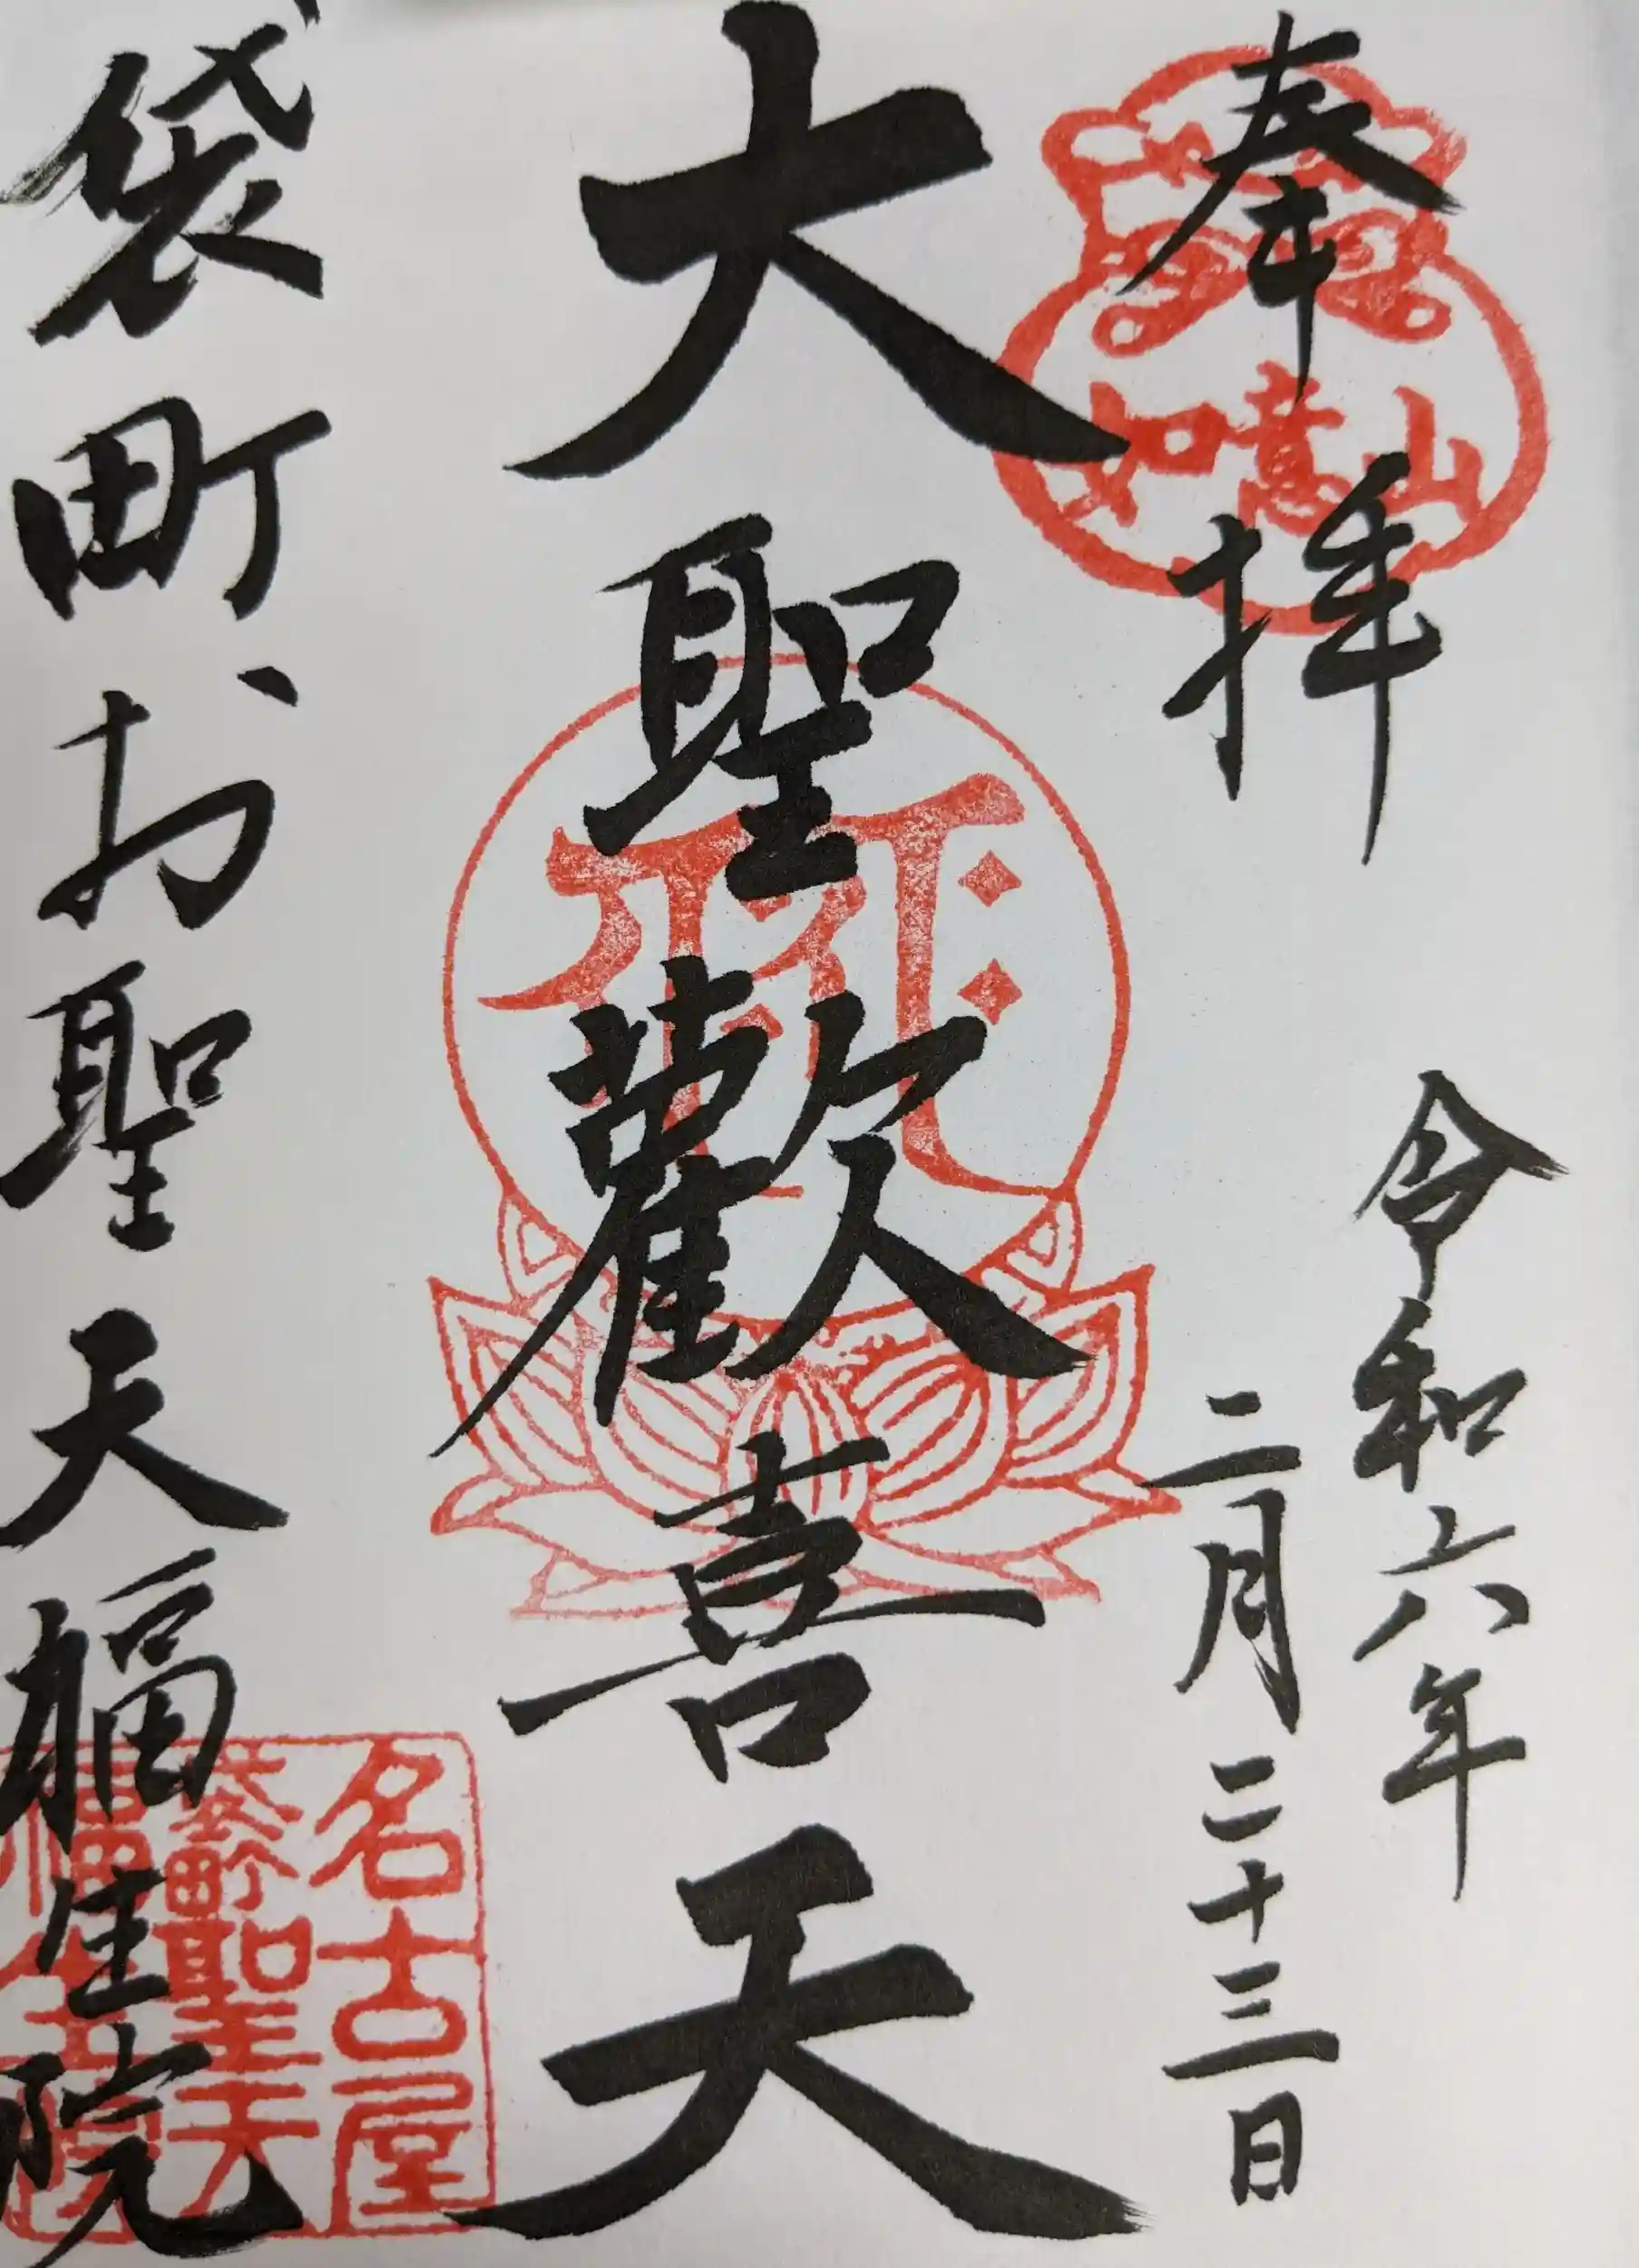 奉拝
如意山
令和六年
二月二十三日
大聖歡喜天
袋町お聖天福生院
名古屋
袋町聖天
福生院